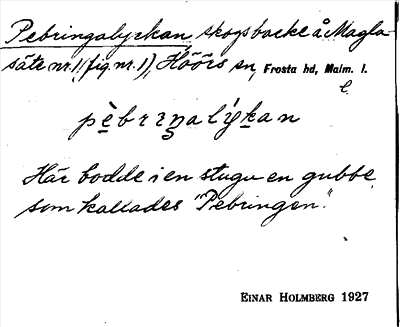 Pebringalyckan, skogsbacke å Magla-
säte nr. 1 (fig. nr. 1), Höörs sn, Frosta hd, Malm. l.
l.
Här bodde i en stuga en gubbe,
som kallades "Pebringen".
EINAR HOLMBERG 1927